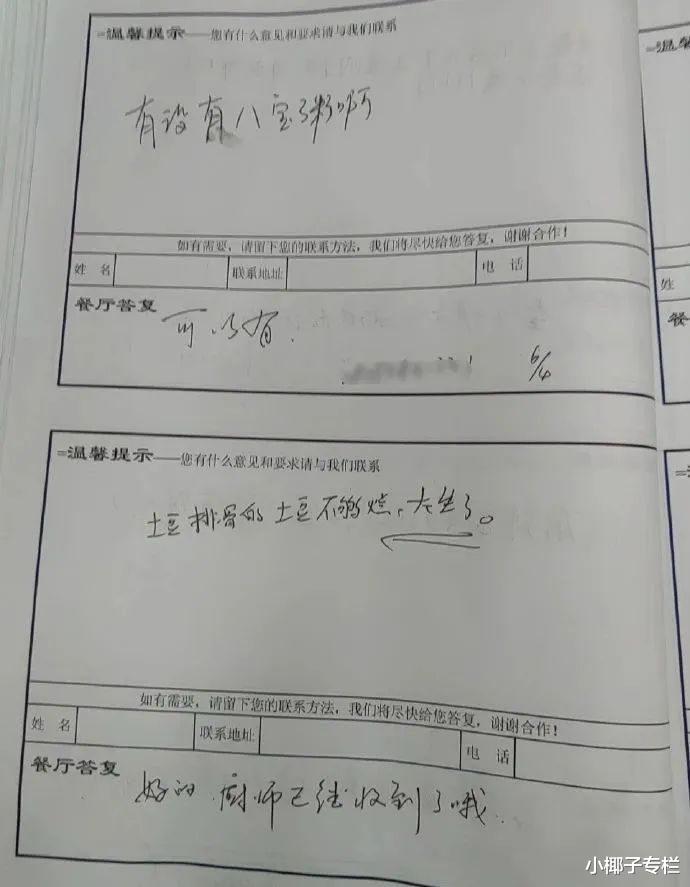 =温馨提示——您有什么意见和要求请与我们联系
=温
有没有八宝粥啊
如有需要，请留下您的联系方法，我们将尽快给您答复，谢谢合作！
姓 名 联系地址 电 话
姓
餐厅答复
餐
可以有.
6/4
=温馨提示——您有什么意见和要求请与我们联系
土豆排骨的土豆不够烂，太生了。
如有需要，请留下您的联系方法，我们将尽快给您答复，谢谢合作！
姓 名 联系地址 电 话
餐厅答复
好的 厨师已经收到了哦..
小椰子专栏